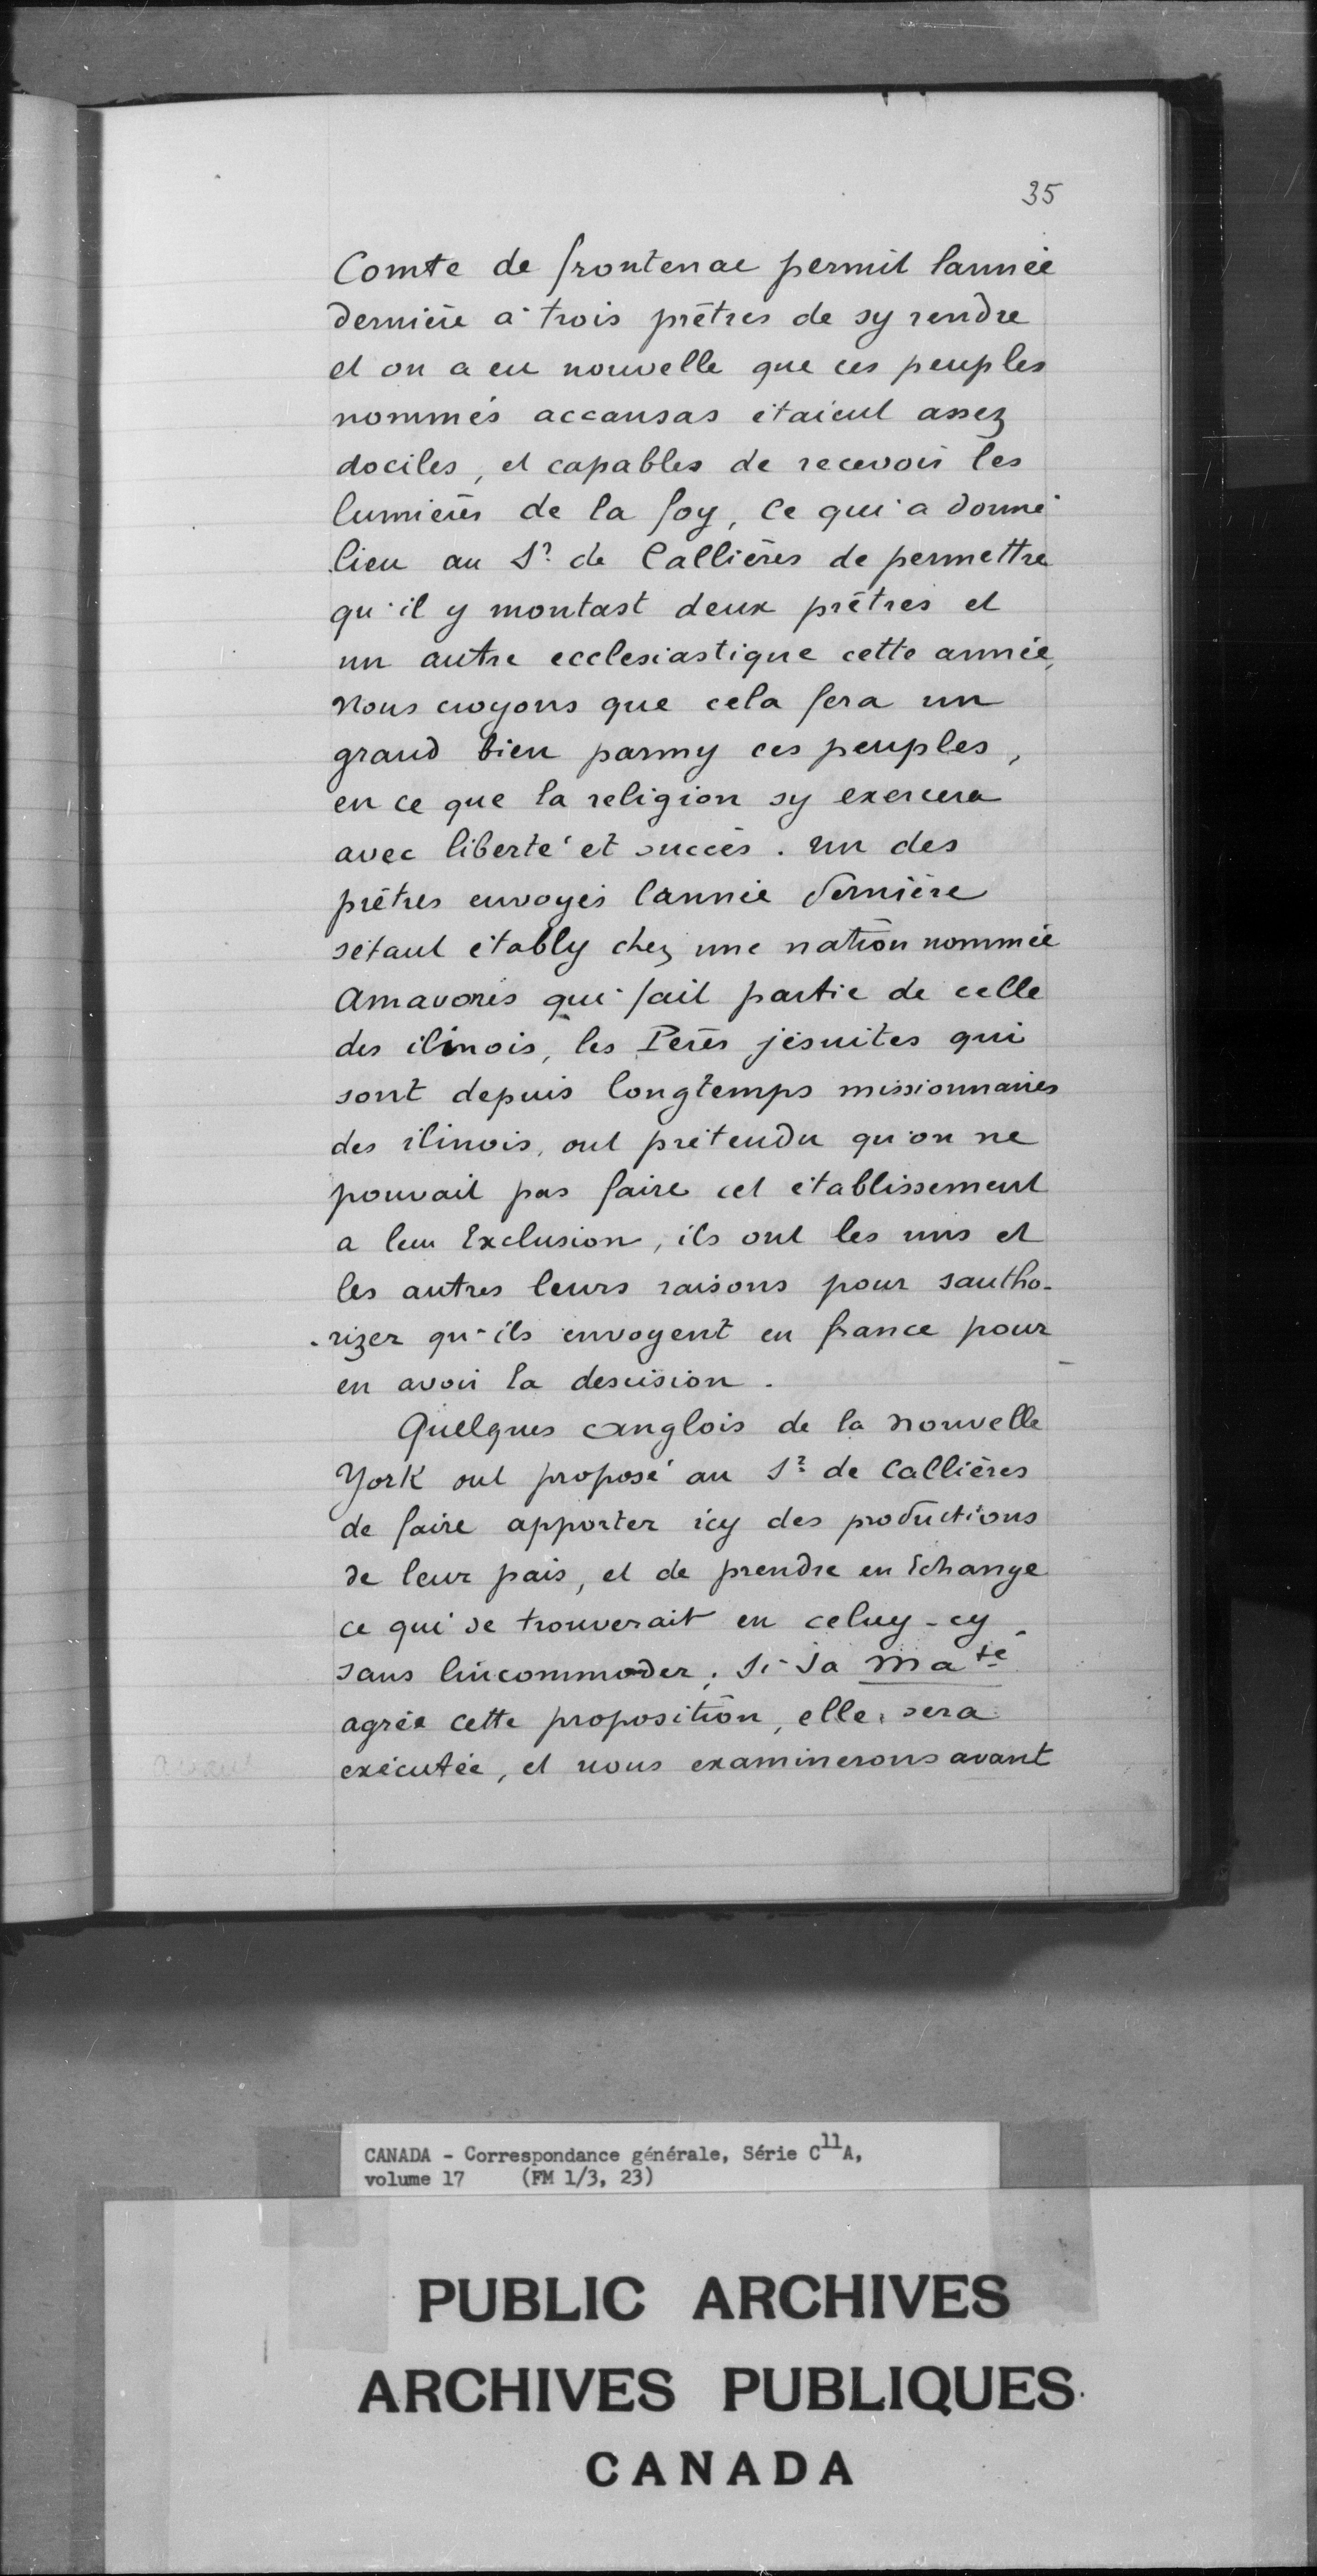 35
Comte de frontenac permit lannée
dernière a trois prêtres de sy rendre
et on a eu nouvelle que ces peuples
nommés accansas étaient assez
dociles, et capables de recevoir les
lumières de la foy, Ce qui a donné
lieu au Sr de Callières de permettre
qu'il y montast deux prêtres et
un autre ecclesiastique cette année,
Nous croyons que cela fera un
grand bien parmy ces peuples,
en ce que la religion sy exercera
avec liberté et succès. un des
prêtres envoyés lannée dernière
sétant étably chez une nation nommée
Amavoris qui fait partie de celle
des ilinois, les Pères jésuites qui
sont depuis longtemps missionnaires
des ilinois, ont prétendu qu'on ne
pouvait pas faire cet établissement
a leur Exclusion, ils ont les uns et
les autres leurs raisons pour sautho-
-rizer qu'ils envoyent en france pour
en avoir la descision.
Quelques anglois de la nouvelle
York ont proposé au Sr de Callières
de faire apporter icy des productions
de leur pais, et de prendre en Echange
ce qui se trouverait en celuy-cy
sans lincommoder, Si Sa Maté
agrée cette proposition, elle sera
exécutée, et nous examinerons avant
CANADA - Correspondance générale, Série C11A,
volume 17 (FM 1/3, 23)
PUBLIC ARCHIVES
ARCHIVES PUBLIQUES
CANADA